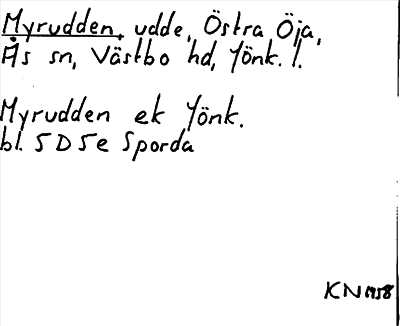 Myrudden, udde, Östra Öja,
Ås sn, Västbo hd, Jönk. l.
Myrudden ek Jönk.
bl. 5D5e Sporda
KN 1958